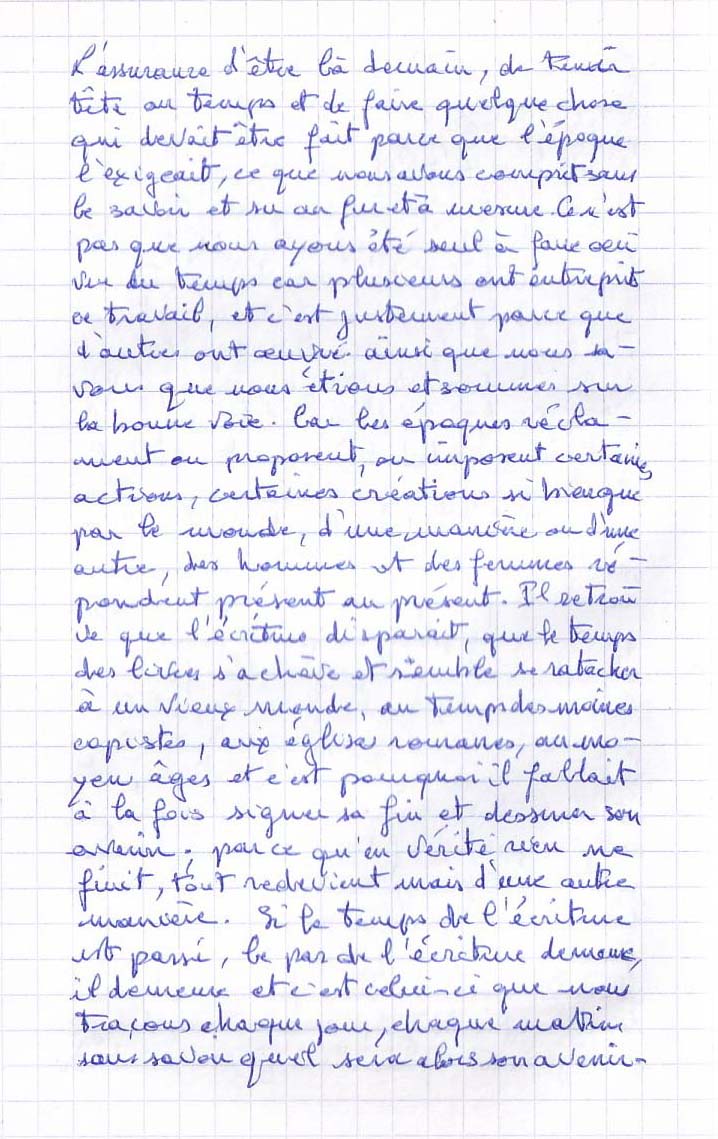 L'assurance d'être là demain, de tenir
tête au temps et de faire quelque chose
qui devait être fait parce que l'époque
l'exigeait, ce que nous avons comprit sans
le savoir et su au fur et à mesure. Ce n'est
pas que nous ayons été seul à faire oeu
vre du temps car plusieurs ont entreprit
ce travail, et c'est justement parce que
d'autres ont œuvré ainsi que nous sa-
vons que nous étions et sommes sur
la bonne voie. Car les époques récla-
ment ou proposent, ou imposent certaines
actions, certaines créations si bien que
par le monde, d'une manière ou d'une
autre, des hommes et des femmes ré-
pondent présent au présent. Il se trou
ve que l'écriture disparait, que le temps
des livres s'achève et semble se ratacher
à un vieux monde, au temps des moines
copistes, aux églises romanes, au mo-
yen âges et c'est pourquoi il fallait
à la fois signer sa fin et dessiner son
avenir ; parce qu'en vérité rien ne
finit, tout redevient mais d'une autre
manière. Si le temps de l'écriture
est passé, le pas de l'écriture demeure,
il demeure et c'est celui-ci que nous
traçons chaque jour, chaque matin
sans savoir quel sera alors son avenir.